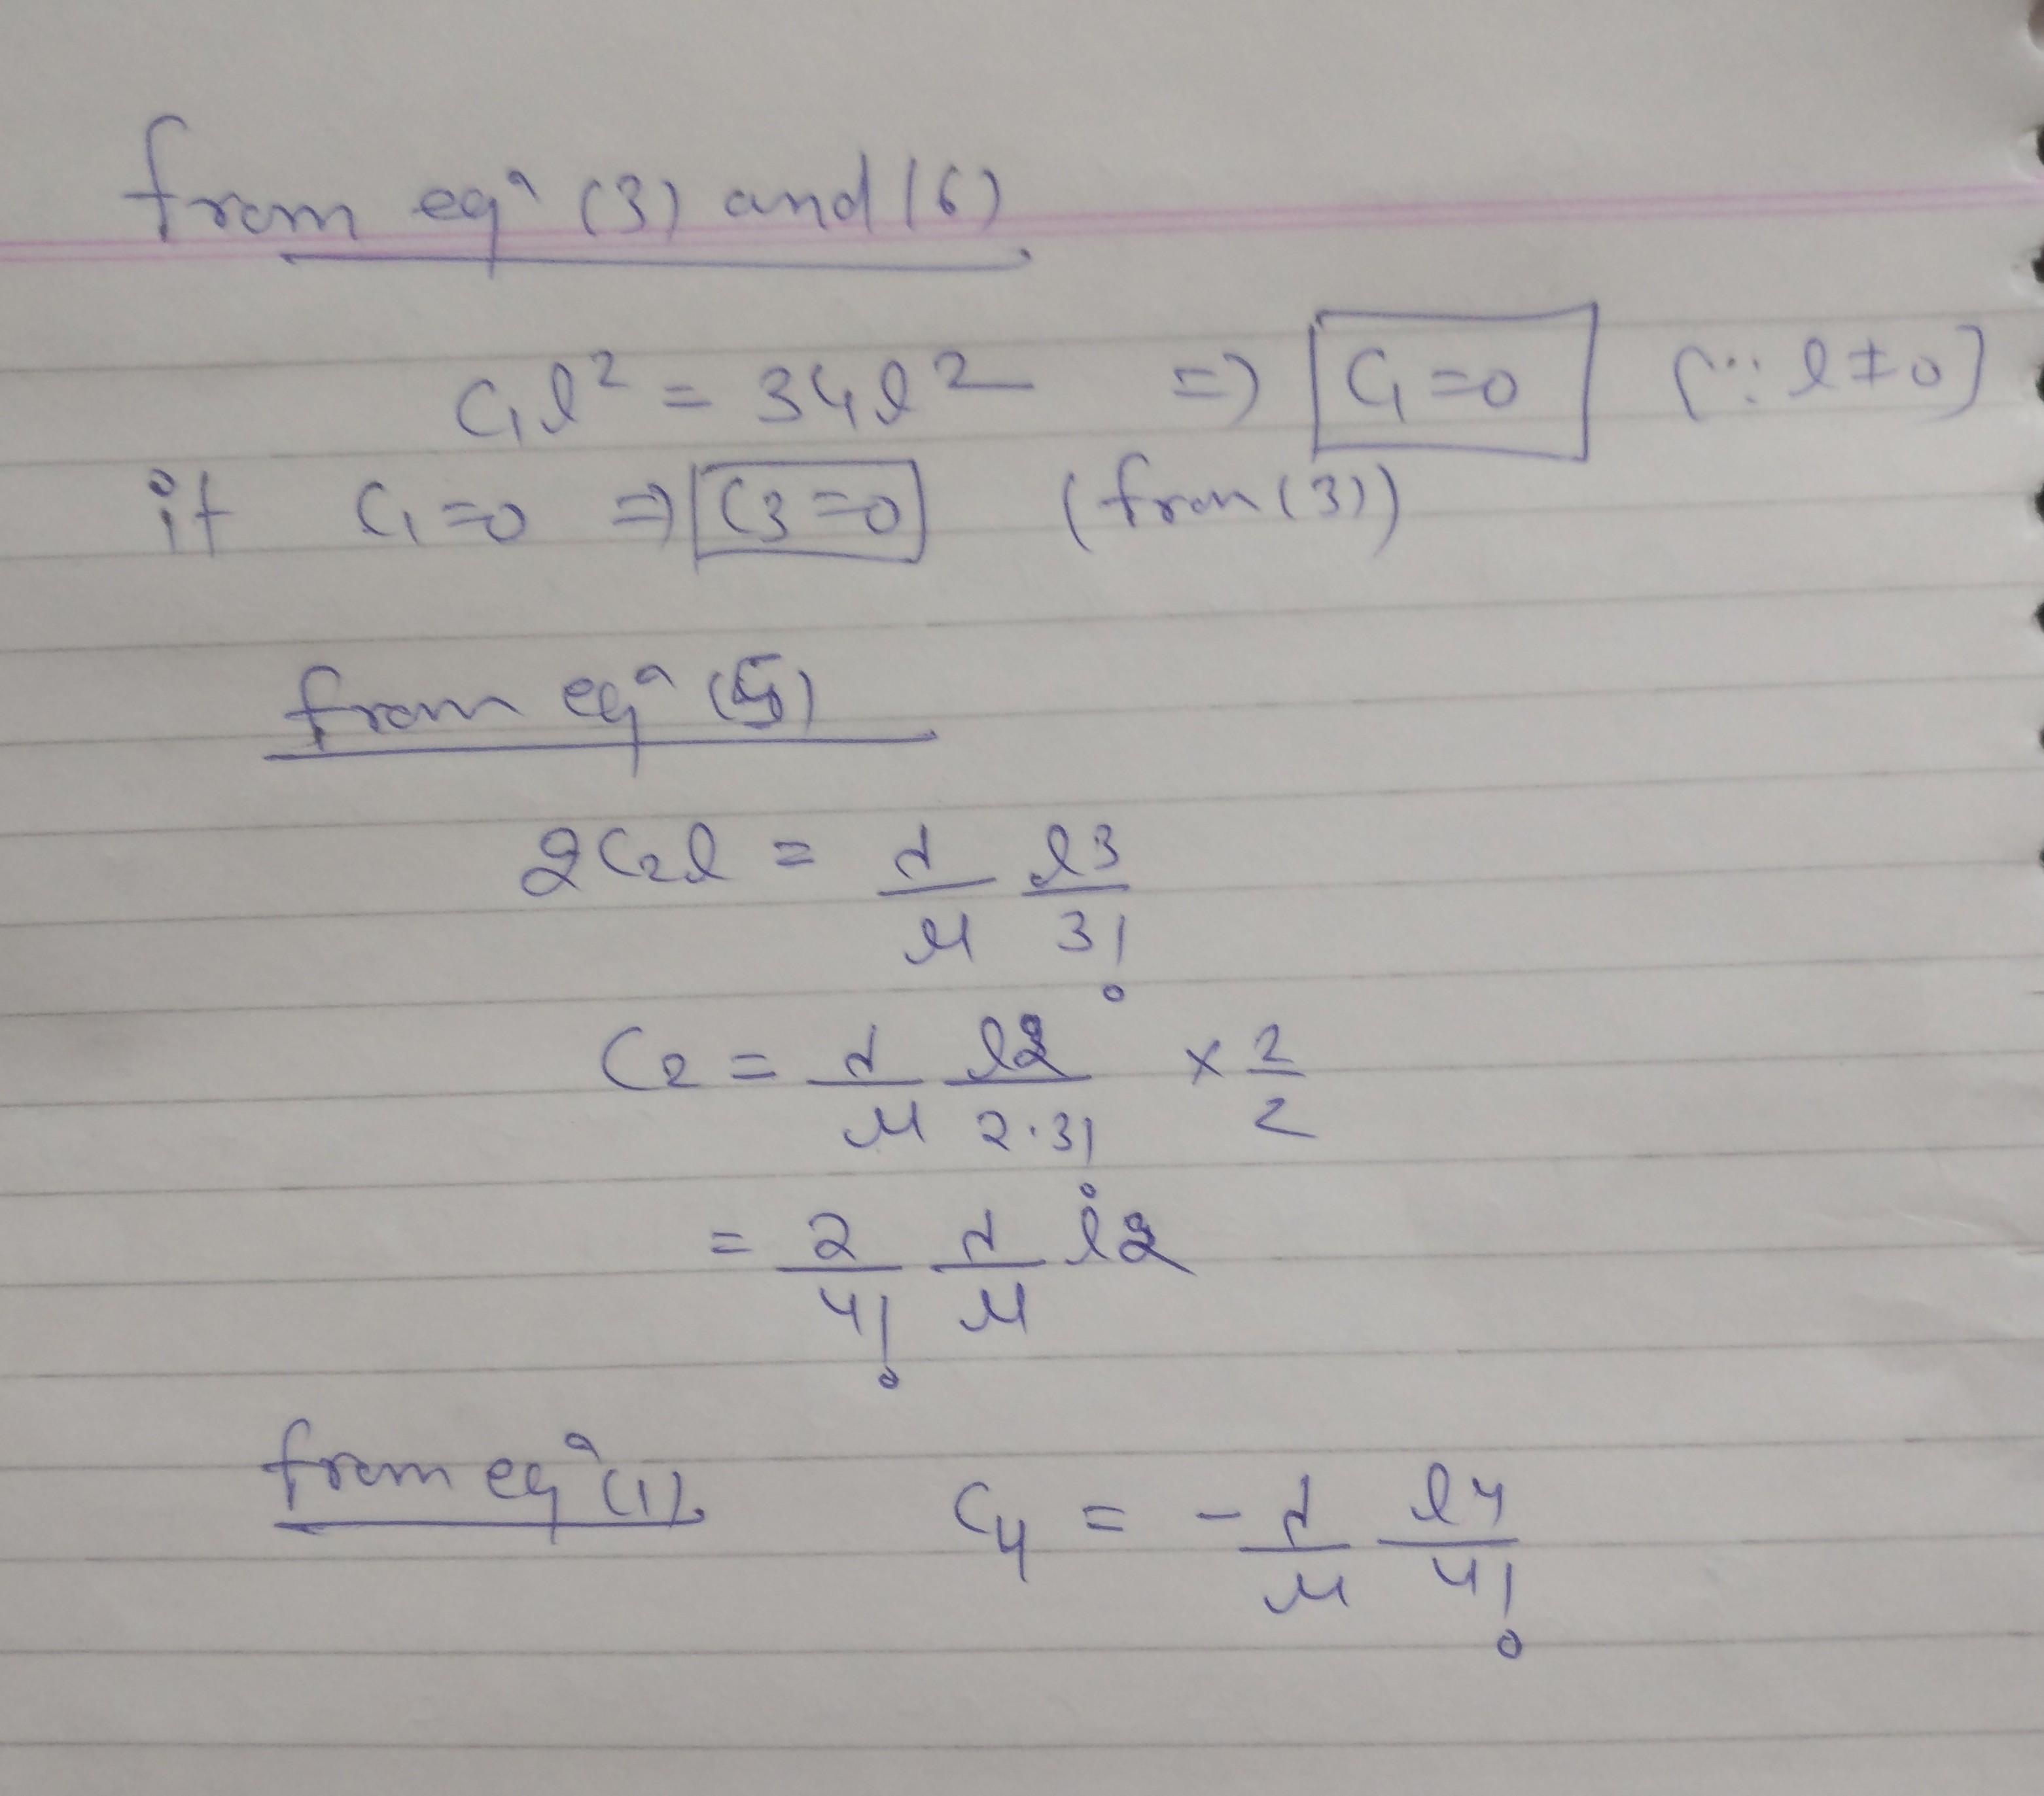 from eqn (3) and (6)
C₁l² = 3C₁l² => C₁=0 [∵ l≠0]
if C₁=0 => C3=0 (from (3))
from eqn (5)
2C₂l = d/μ l3/3!
C2 = d/μ l2/2·3! × 2/2
= 2/4! d/μ l2
from eqn (1)
C4 = - d/μ l4/4!